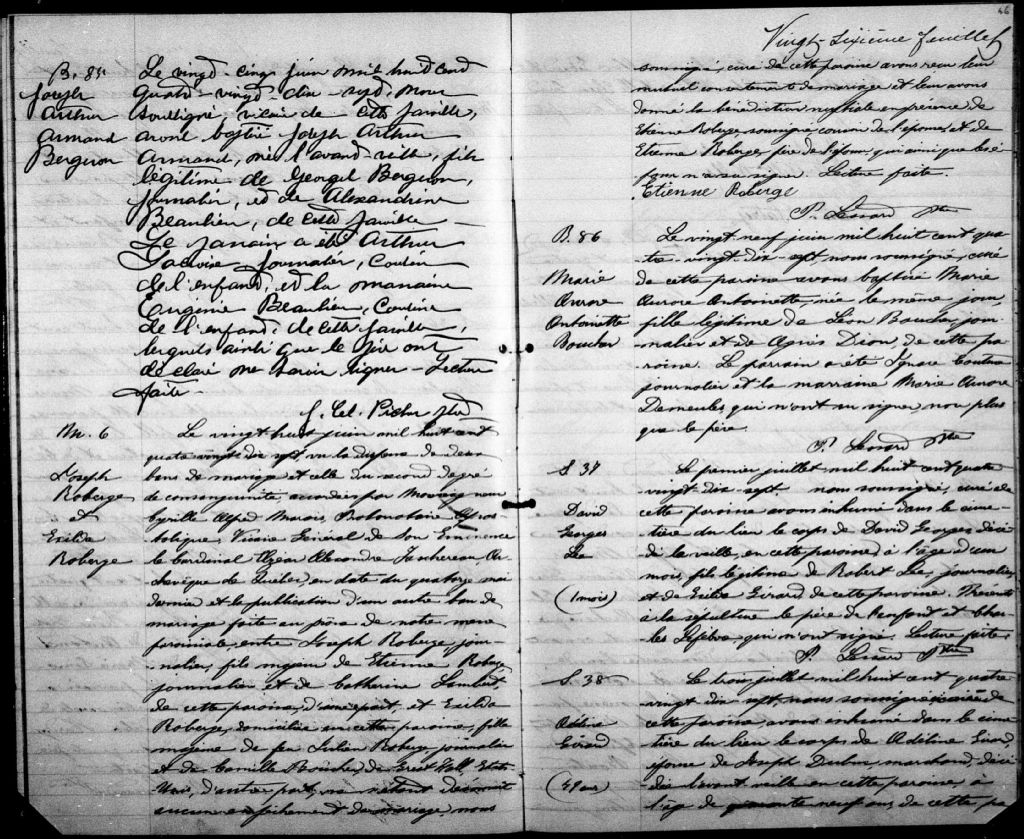 B. 85
Joseph
Arthur
Armand
Bergeron
Le vingt-cinq juin mil huit cent
quatre-vingt-dix-sept, nous
soussigné, vicaire de cette paroisse,
avons baptisé Joseph Arthur
Armand, né l'avant-veille, fils
légitime de Bergeron,
journalier, et de Alexandrine
Beaulieu, de cette paroisse
Le parrain a été Arthur
journalier, cousin
de l'enfant, et la marraine
Eugénie Beaulieu, cousine
de l'enfant, de cette paroisse,
lesquels ainsi que le père ont
déclaré ne savoir signer - Lecture
faite -
J. Cel. Ptre
M. 6
Joseph
Roberge
et
Exilda
Roberge
Le vingt huit juin mil huit cent
quatre vingt dix sept, vu la dispense de deux
bans de mariage et celle du second degré
de consanguinité, accordées par Monseigneur
Cyrille Alfred Marois, Protonotaire Apos-
tolique, Vicaire Général de Son Eminence
le Cardinal Elzéar Alexandre Taschereau, Ar-
chevêque de Québec, en date du quatorze mai
dernier et la publication d'un autre ban de
mariage faite au prône de notre messe
paroissiale, entre Joseph Roberge, jour-
nalier, fils majeur de Etienne Roberge
journalier et de Catherine Lambert,
de cette paroisse, d'une part, et Exilda
Roberge, domiciliée en cette paroisse, fille
majeure de feu Julien Roberge, journalier
et de Camille Boucher, de Great Fall, Etats
Unis, d'autre part, ne s'étant découvert
aucun empêchement de mariage, nous
46
Vingt-sixième feuillet
soussigné, curé de cette paroisse avons reçu leur
mutuel consentement de mariage et leur avons
donné la bénédiction nuptiale en présence de
Etienne Roberge, soussigné, cousin de l'épouse, et de
Etienne Roberge, père de l'époux, qui ainsi que les é-
poux n'a su signer. Lecture faite.
Etienne Roberge
P. Ptre
B. 86
Marie
Aurore
Antoinette
Boucher
Le vingt neuf juin mil huit cent qua-
tre-vingt-dix-sept nous soussigné, curé
de cette paroisse avons baptisé Marie
Aurore Antoinette, née le même jour,
fille légitime de Léon Boucher, jour-
nalier et de Agnès Dion, de cette pa-
roisse. Le parrain a été Ignace
journalier et la marraine Marie Aurore
Demeules, qui n'ont su signer, non plus
que le père.
P. Ptre
S. 37
David
Georges
(1 mois)
Le premier juillet mil huit cent quatre
vingt-dix-sept. nous soussigné, curé de
cette paroisse avons inhumé dans le cime-
tière du lieu le corps de David Georges, décé-
dé la veille, en cette paroisse, à l'âge d'un
mois, fils légitime de Robert journalier,
et de Exilda Girard de cette paroisse. Présents
à la sépulture le père de l'enfant et Char-
les Lefebvre, qui n'ont signé. Lecture faite.
P. Ptre
S. 38
Adéline
Girard
(49 ans)
Le trois juillet mil huit cent quatre
vingt dix sept, nous soussigné, curé de
cette paroisse, avons inhumé dans le cime-
tière du lieu le corps de Adéline Girard,
épouse de Joseph marchand, décé-
dée l'avant veille en cette paroisse, à
l'âge de quarante neuf ans de cette pa